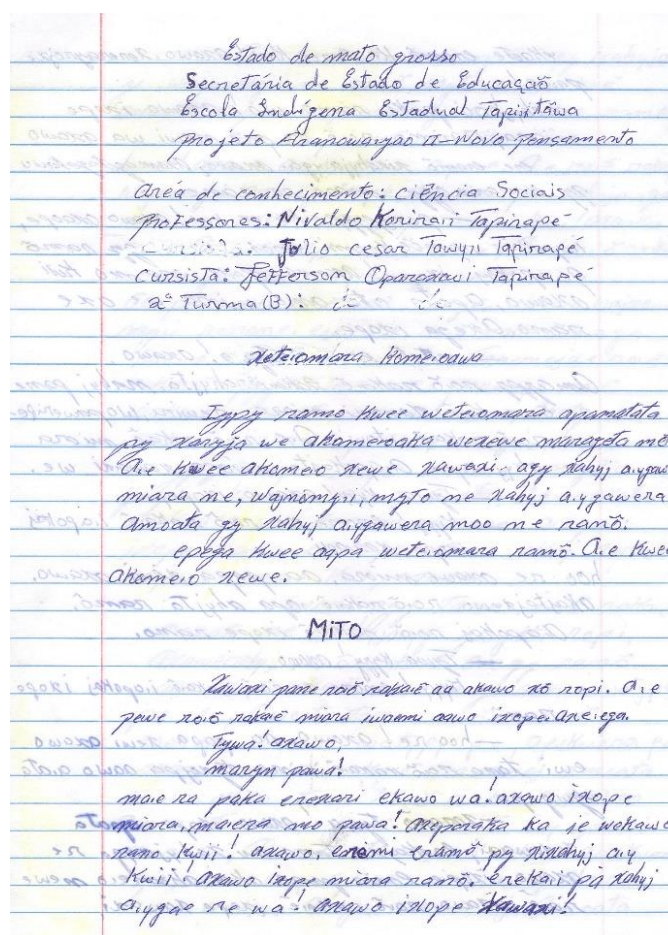 Estado de mato grosso
Secretária de Estado de Educação
Escola Indígena Estadual Tapi'itãwa
Projeto Aranowa'yao II-Novo Pensamento
areá de conhecimento: ciência Sociais
professores: Nivaldo Korira'i Tapirapé
Julio cesar Tawy'i Tapirapé
cursista: Jefferson Oparaxowi Tapirapé
2ª Turma (B):
Xeteiomara Komeoawa
Iypy ramo Kwee weteiomara apamatata
py xaryja we akomeoaka wexewe maragéta mõ
A'e Kwee akomeo xewe xawaxi. agy xahyj a'ygawe
miara ne, wajnomy'i, myto ne xahyj a'ygawera
amoata gy xahyj a'ygawera moo ne ramõ.
epega Kwee aapa weteiomara ramõ. A'e Kwee
akomeo xewe.
MiTO
Xawaxi pane raõ rakaẽ aa akawo xõ ropi. A'e
pewe roõ rakaẽ miara iwaemi aawo ixope. Axeega.
Tywa! axawo,
maryn pawa!
ma'e ra paka erexari ekawo wa! axawo ixope
miara, ma'era mo pawa! axyporaka ka je wekawo
ramo Kwii! axawo, eremi eramõ py xixahyj a'y
Kwii! axawo ixope miara ramõ. ereka'i pã xahyj
a'ygae ne wã! axawo ixope Xawaxi!